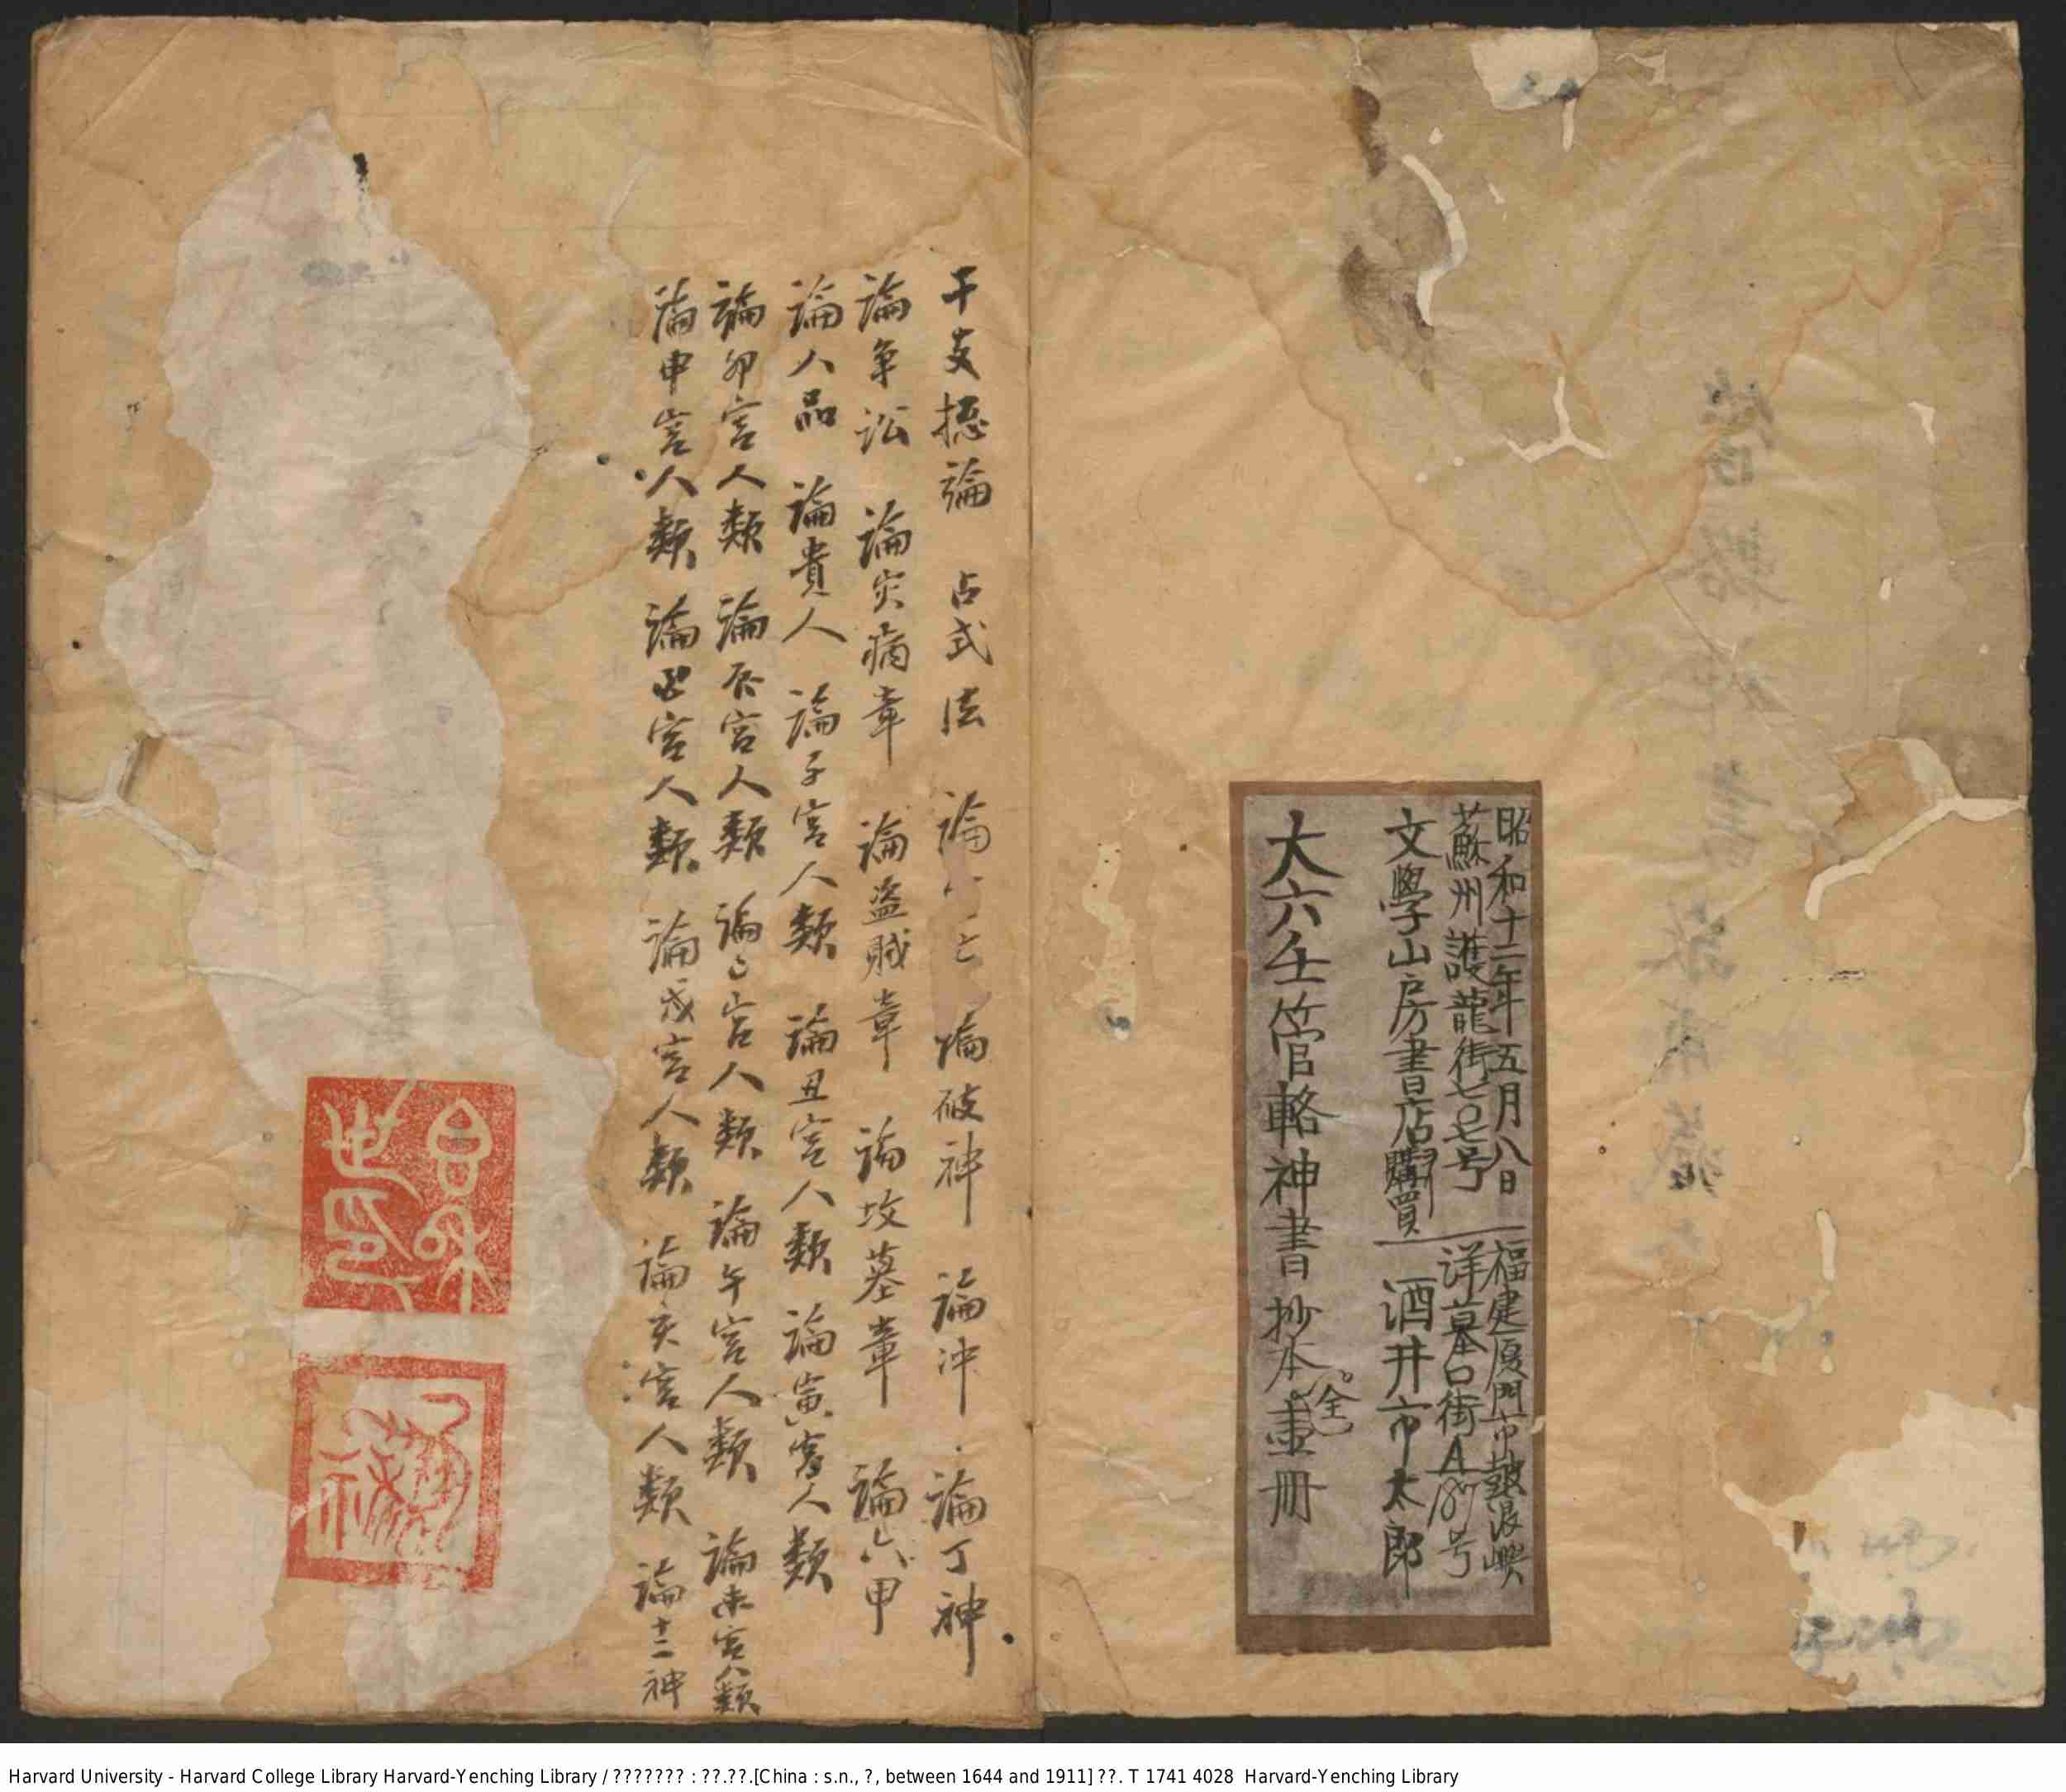 昭和十二年五月八日 福建厦門市鼓浪嶼
蘇州護龍街七〇七号 洋墓口街A187号
文學山房書店購買 酒井市太郎
大六壬管輅神書抄本全壹冊
干支揔論 占式法 論 亡 論破神 論冲 論丁神
論爭訟 論灾病章 論盜賊章 論坟墓章 論六甲
論人品 論貴人 論子宮人類 論丑宮人類 論寅宮人類
論卯宮人類 論辰宮人類 論巳宮人類 論午宮人類 論未宮人類
論申宮人類 論酉宮人類 論戌宮人類 論亥宮人類 論十二神
Harvard University - Harvard College Library Harvard-Yenching Library / ??????? : ??.??.[China : s.n., ?, between 1644 and 1911] ??. T 1741 4028 Harvard-Yenching Library